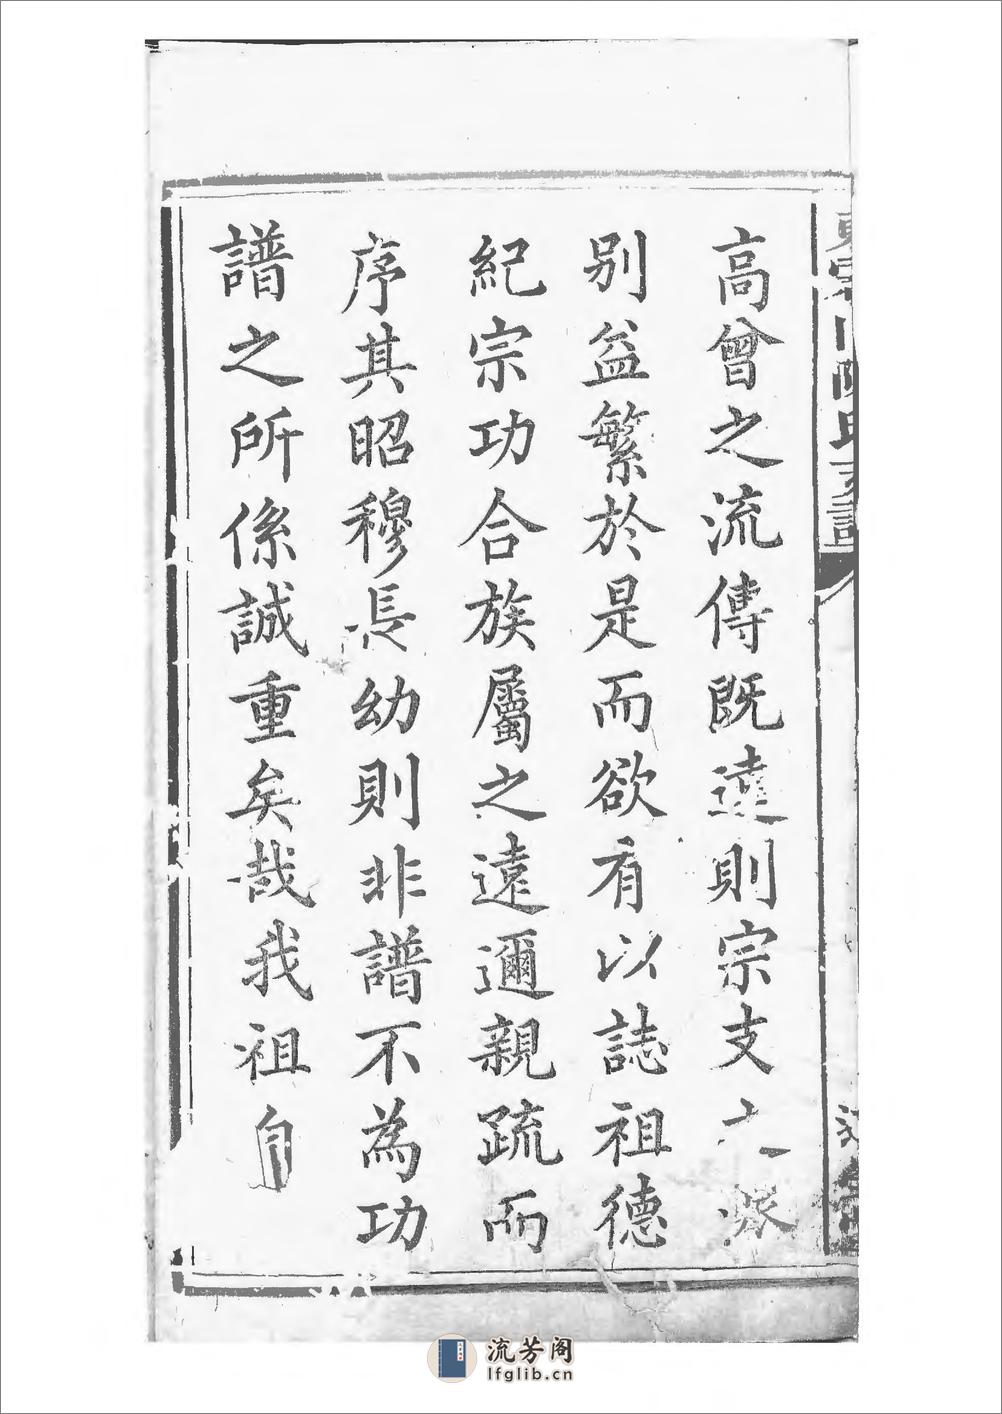 高曾之流傳既遠則宗支之派
别益繁於是而欲有以誌祖德
紀宗功合族屬之遠邇親疏而
序其昭穆長幼則非譜不為功
譜之所係誠重矣哉我祖自
陳氏支譜
流芳阁
lfglib.cn